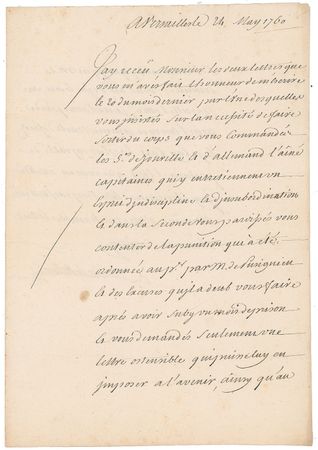 A Versailles le 24 May 1760
J'ay receu Monsieur les deux lettres que
vous m'aves fait l'honneur de m'ecrire
le 20 du mois dernier par l'une desquelles
vous insistés sur la necessité de faire
sortir du corps que vous commandés
les Srs de jourelle et d'allemand l'ainé
capitaines qui y entretiennent un
esprit d'indiscipline et d'insubordination
et dans la seconde vous paroissés vous
contenter de la punition qui a été
ordonnée au pr par M. de
et des Excuses qu'il a deub vous faire
aprés avoir suby un mois de prison
et vous demandés seulement une
lettre ostensible qui puisse luy en
imposer a l'avenir, ainsy qu'au